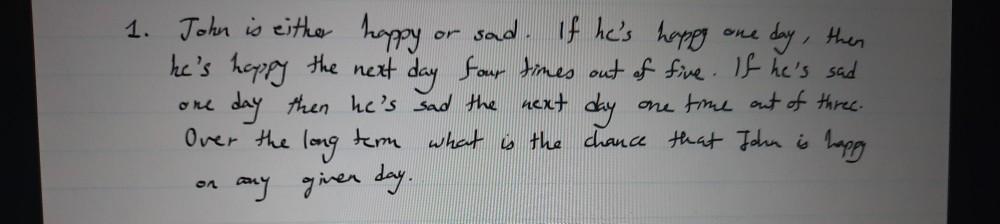 1. John is either happy or sad. If he's happy one day, then
he's happy the next day four times out of five. If he's sad
one day then he's sad the next day one time out of three.
Over the long term what is the chance that John is happy
on any given day.